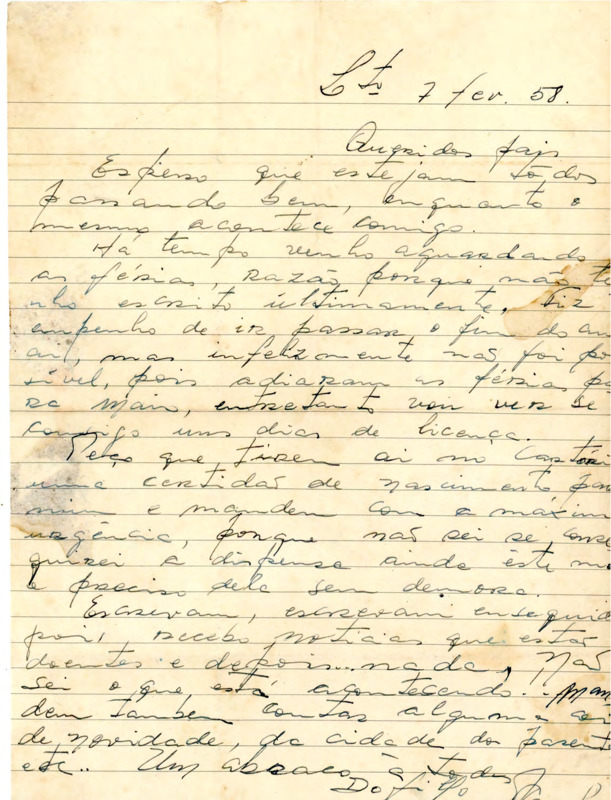 Lto 7 fev. 58.
Queridos pais
Espero que estejam todos
passando bem, enquanto o
mesmo acontece comigo.
Há tempo venho aguardando
as férias, razão porque não te
nho escrito ultimamente. Fiz
empenho de ir passar o fim do an
ai, mas infelizmente não foi po
sível, pois adiaram as férias p
ra Maio, entretanto vou ver se
consigo uns dias de licença.
Peço que tirem ai no Cartóri
uma certidão de nascimento par
mim e mandem com a máxim
urgência, porque não sei se conse
guirei a dispensa ainda êste m
e preciso dela sem demora.
Escrevam, escrevam enseguid
pois, recebo noticias que estão
doentes e depois... nada, Não
sei o que está acontecendo... Man
dem tambem contas alguma co
de novidade, da cidade do parent
etc.. Um abraço à todos
Do filho